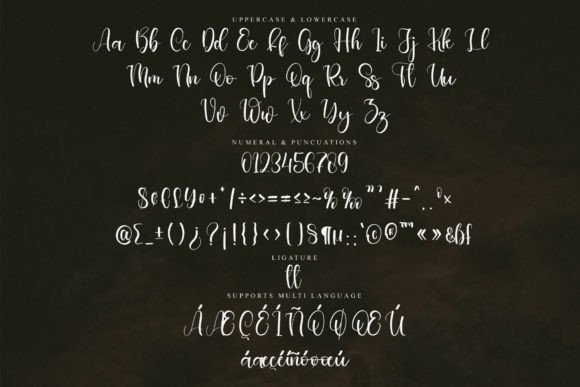 UPPERCASE & LOWERCASE
Aa Bb Cc Dd Ee Ff Gg Hh Ii Jj Kk Ll
Mm Nn Oo Pp Qq Rr Ss Tt Uu
Vv Ww Xx Yy Zz
NUMERAL & PUNCUATIONS
0123456789
+ * / ÷ < > = ≠ ≤ ≥ ~ % ‰ " ' # - ^ . , ° ×
@ Σ _ ± ( ) ¿ ? ¡ ! [ ] { } ‹ › § ¶ µ : ; ' © ® ™ « » &
LIGATURE
tt
SUPPORTS MULTI LANGUAGE
ÁÆÇÉÍÑÓØŒÚ
áæçéíñóøœú